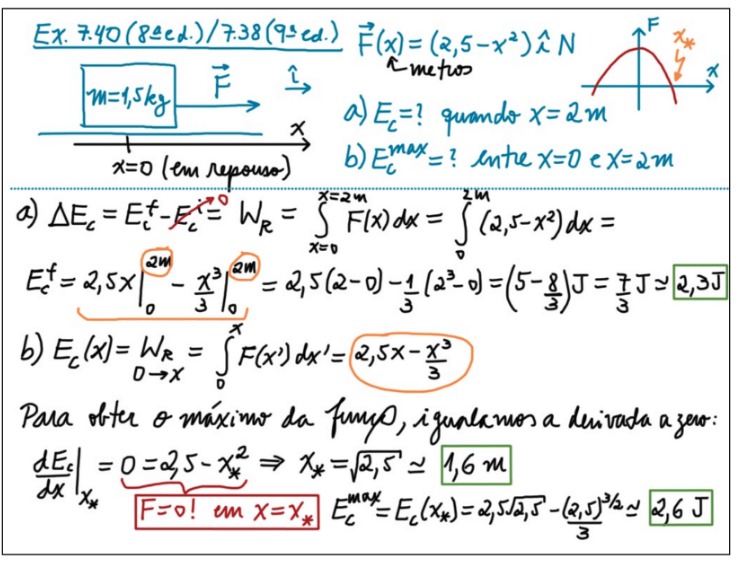 Ex. 7.40 (8ª ed.) / 7.38 (9ª ed.)
F⃗(x) = (2,5-x²) î N
metros
F
x*
x
m=1,5kg
F⃗
î
x
x=0 (em repouso)
a) Ec=? quando x=2m
b) Ec^max=? entre x=0 e x=2m
a) ΔEc = Ec^f - Ec^i = W_R = ∫_{x=0}^{x=2m} F(x) dx = ∫_0^{2m} (2,5-x²) dx =
0
Ec^f = 2,5x |_0^{2m} - x³/3 |_0^{2m} = 2,5(2-0) - 1/3 (2³-0) = (5-8/3) J = 7/3 J ≃ 2,3 J
b) Ec(x) = W_R = ∫_0^x F(x') dx' = 2,5x - x³/3
0→x
Para obter o máximo da funço, igualamos a derivada a zero:
dEc/dx |_{x*} = 0 = 2,5 - x*² ⇒ x* = √2,5 ≃ 1,6 m
F=0! em x=x*
Ec^max = Ec(x*) = 2,5√2,5 - (2,5)^{3/2}/3 ≃ 2,6 J